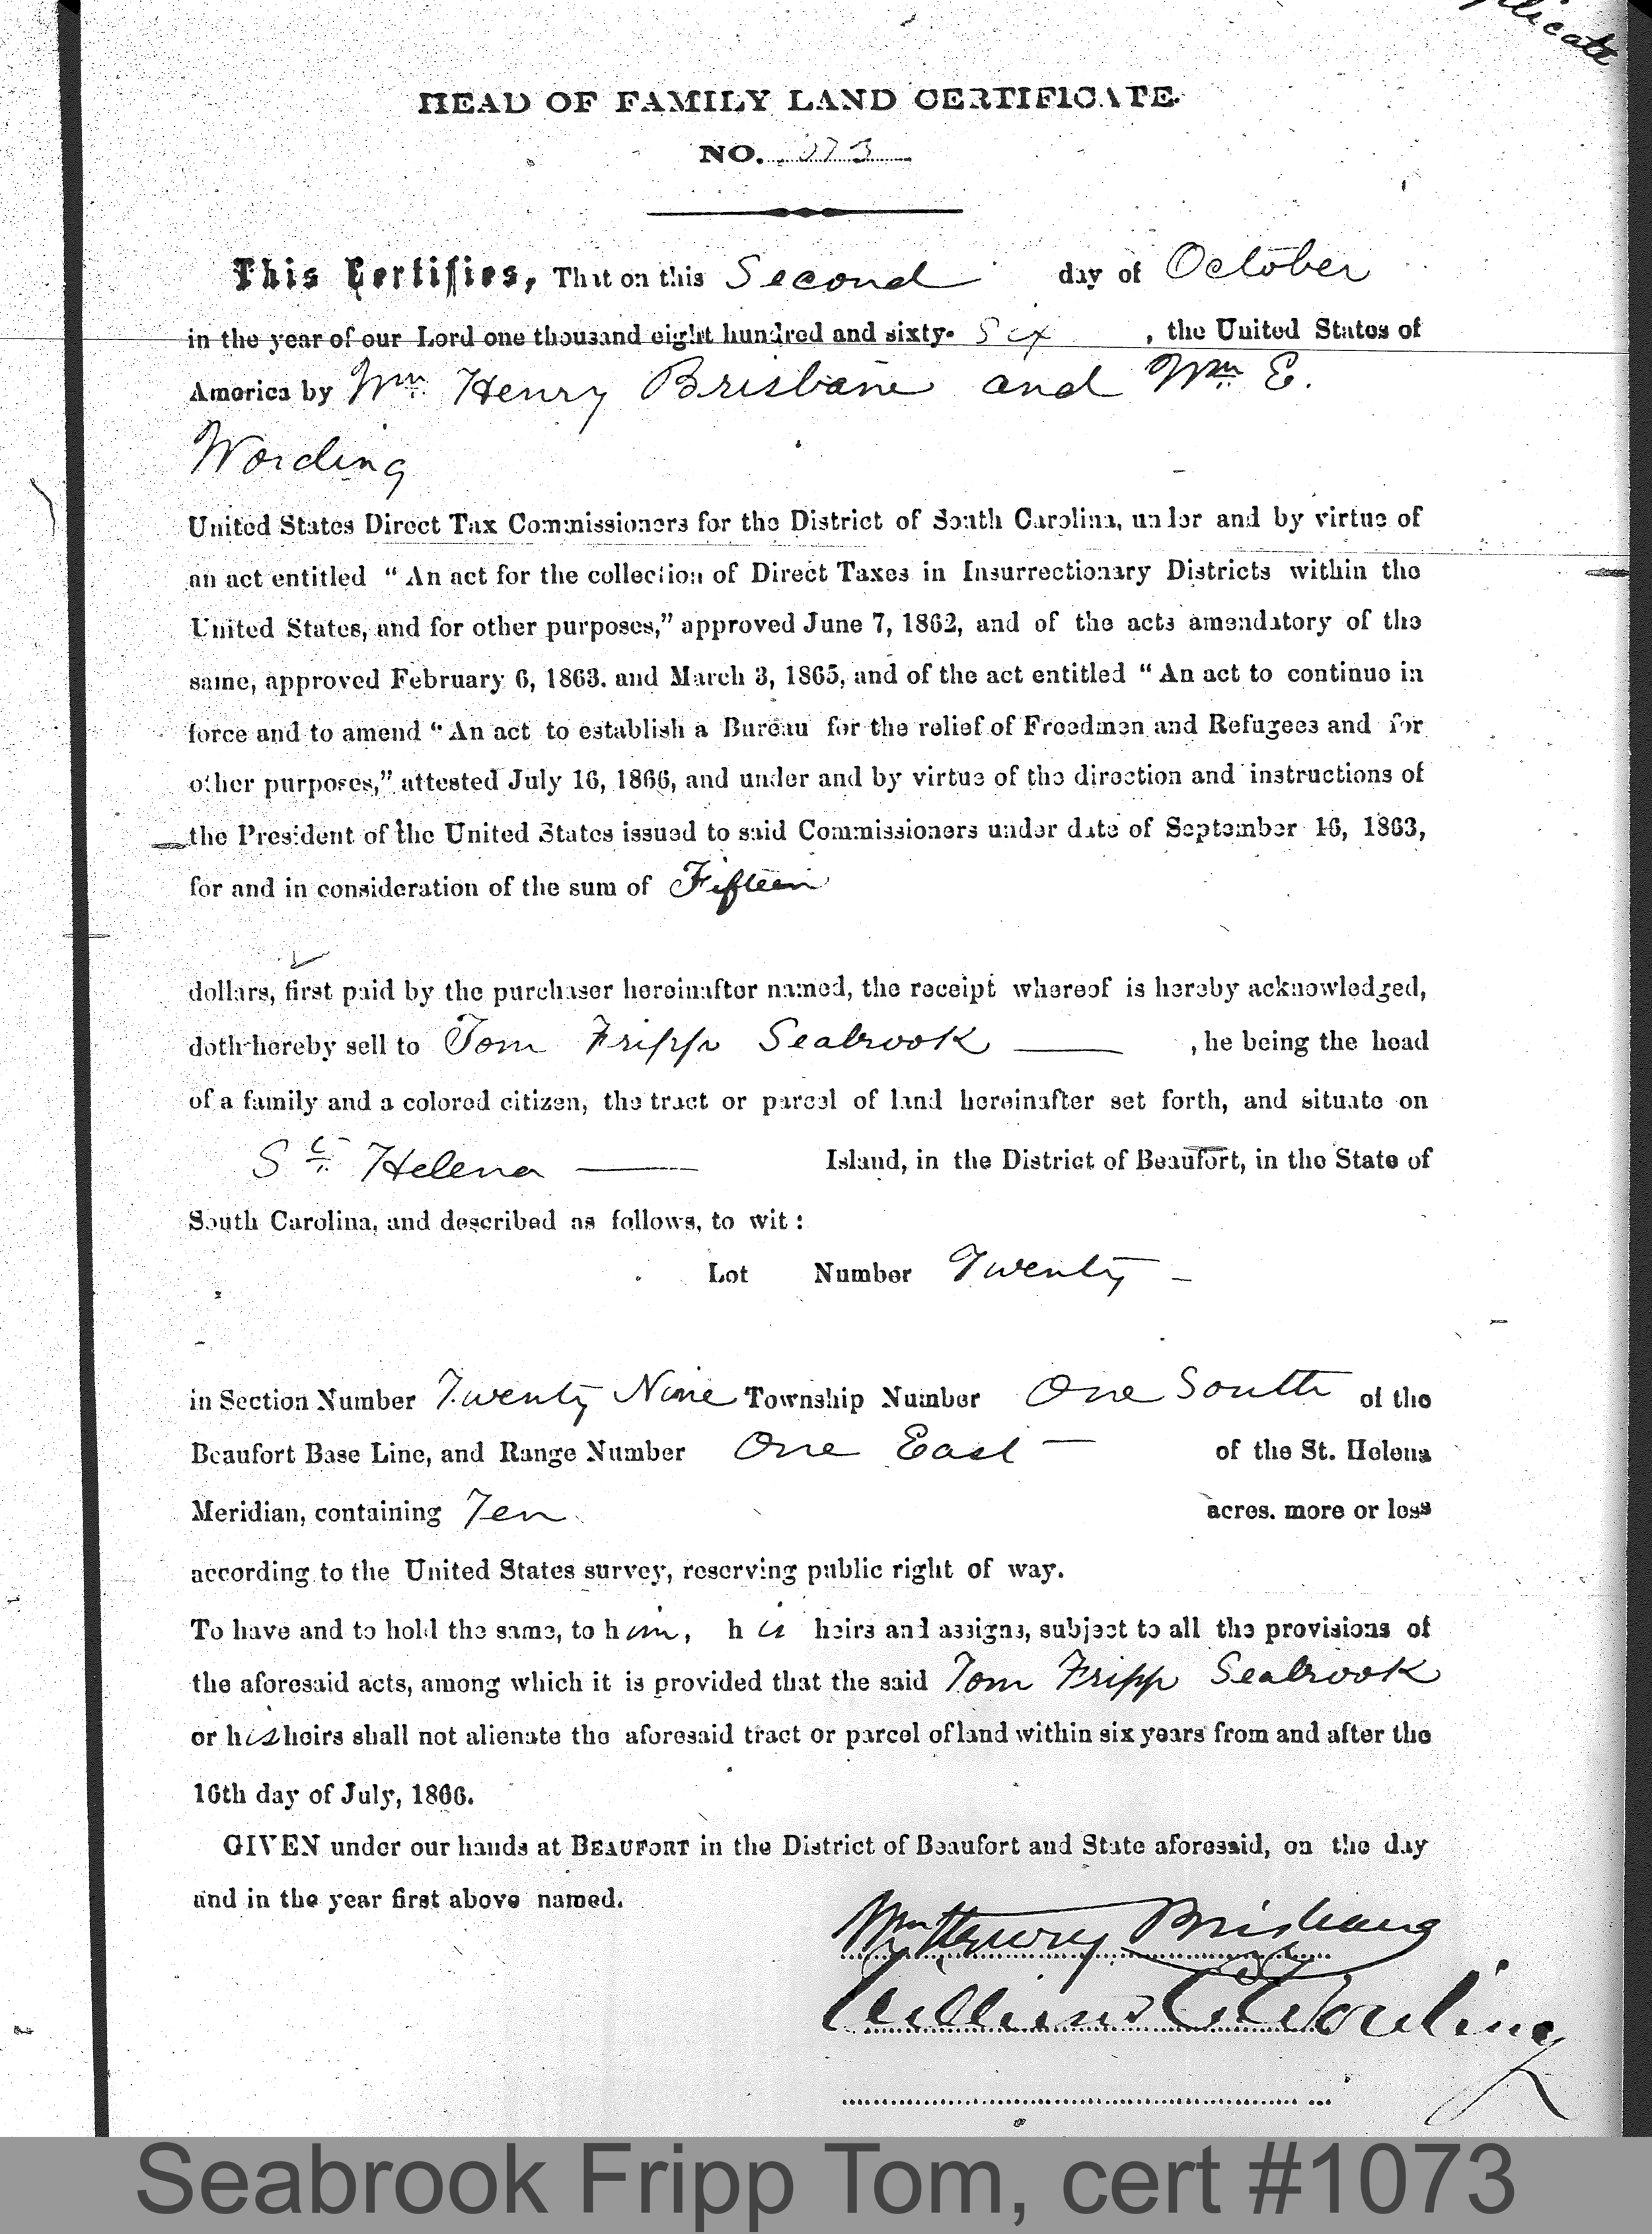 plicate
HEAD OF FAMILY LAND CERTIFICATE.
NO. 073
This Certifies, That on this Second day of October
in the year of our Lord one thousand eight hundred and sixty- Six , the United States of
America by Wm. Henry Brisbane and Wm. E.
Wording
United States Direct Tax Commissioners for the District of South Carolina, under and by virtue of
an act entitled "An act for the collection of Direct Taxes in Insurrectionary Districts within the
United States, and for other purposes," approved June 7, 1862, and of the acts amendatory of the
same, approved February 6, 1863. and March 3, 1865, and of the act entitled "An act to continue in
force and to amend "An act to establish a Bureau for the relief of Freedmen and Refugees and for
other purposes," attested July 16, 1866, and under and by virtue of the direction and instructions of
the President of the United States issued to said Commissioners under date of September 16, 1863,
for and in consideration of the sum of Fifteen
dollars, first paid by the purchaser hereinafter named, the receipt whereof is hereby acknowledged,
doth hereby sell to Tom Fripp Seabrook — , he being the head
of a family and a colored citizen, the tract or parcel of land hereinafter set forth, and situate on
St. Helena — Island, in the District of Beaufort, in the State of
South Carolina, and described as follows, to wit:
Lot Number Twenty —
in Section Number Twenty Nine Township Number One South of the
Beaufort Base Line, and Range Number One East — of the St. Helena
Meridian, containing Ten acres. more or less
according to the United States survey, reserving public right of way.
To have and to hold the same, to him, his heirs and assigns, subject to all the provisions of
the aforesaid acts, among which it is provided that the said Tom Fripp Seabrook
or his heirs shall not alienate the aforesaid tract or parcel of land within six years from and after the
16th day of July, 1866.
GIVEN under our hands at BEAUFORT in the District of Beaufort and State aforesaid, on the day
and in the year first above named.
Wm Henry Brisbane
William E Wording
Seabrook Fripp Tom, cert #1073